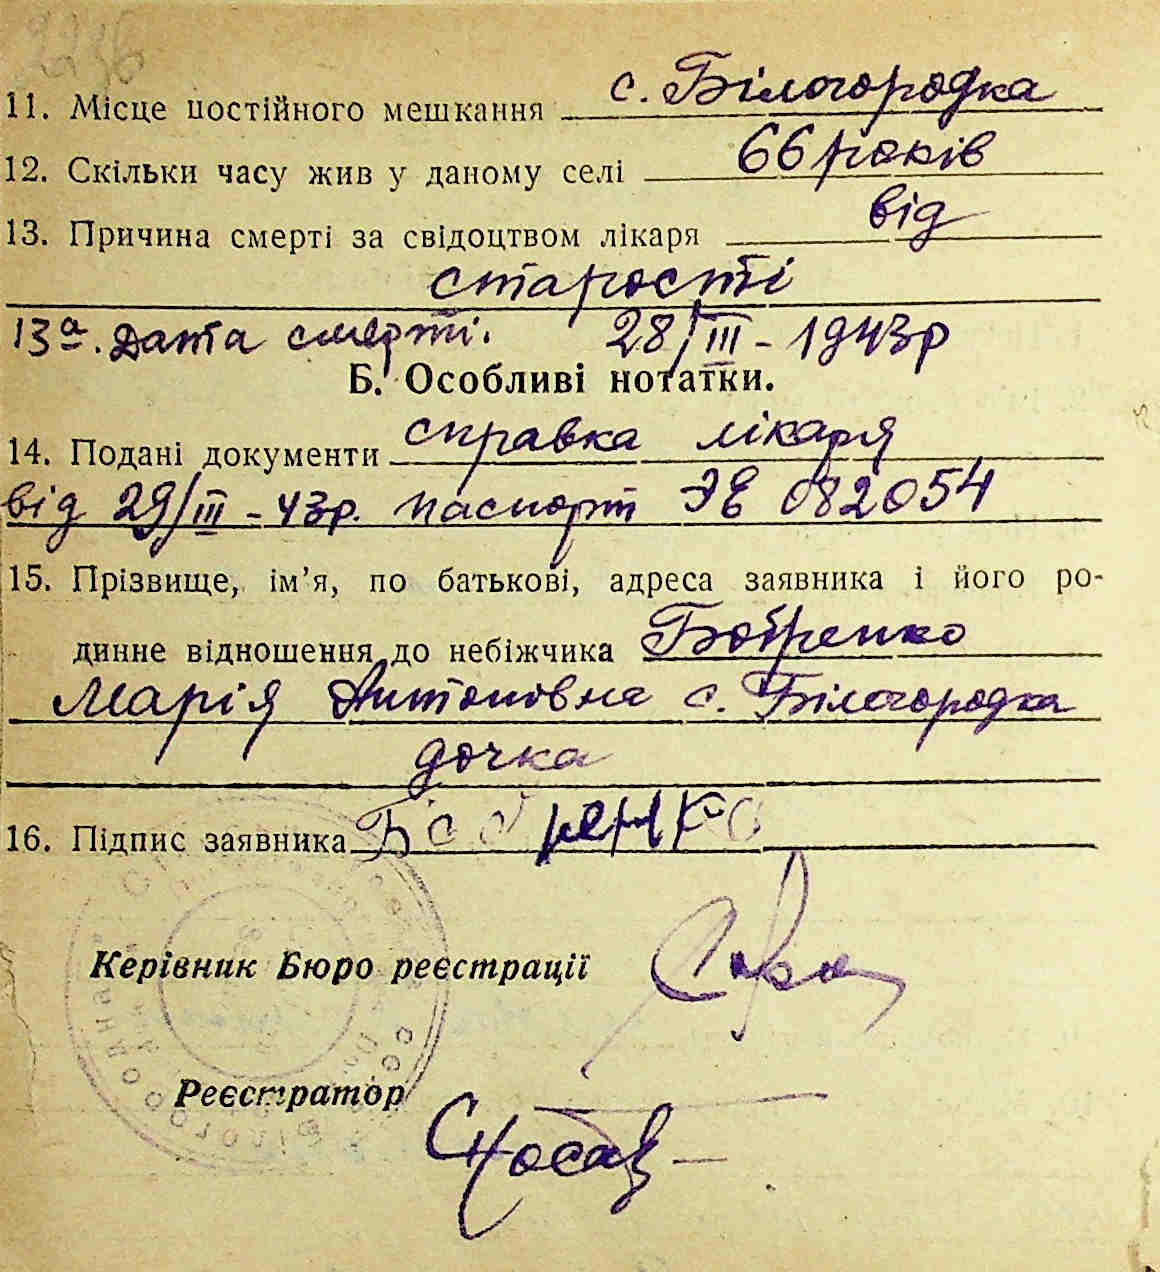 2236
11. Місце постійного мешкання с. Білогородка
12. Скільки часу жив у даному селі 66 років
13. Причина смерті за свідоцтвом лікаря від
старості
13а. Дата смерті. 28/III - 1943р
Б. Особливі нотатки.
14. Подані документи справка лікаря
від 29/III - 43р. паспорт ЭЕ 082054
15. Прізвище, ім’я, по батькові, адреса заявника і його ро-
динне відношення до небіжчика Бобренко
Марія Антонівна с. Білогородка
дочка
16. Підпис заявника Бобренко
Керівник Бюро реєстрації
Реєстратор